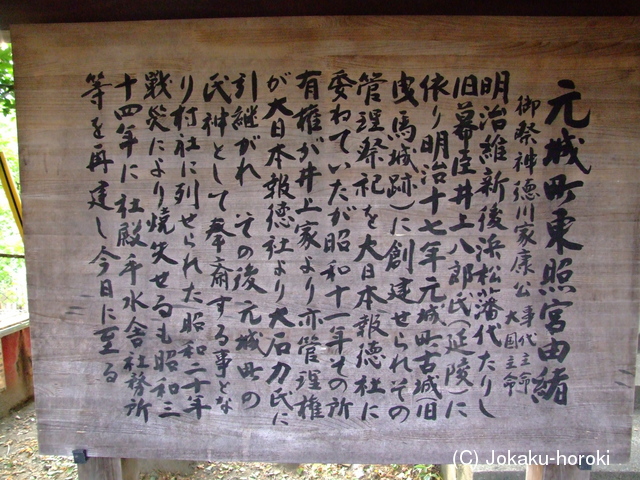 元城町東照宮由緒
御祭神徳川家康公 事代主命 大国主命
明治維新後浜松藩代たりし
旧幕臣井上八郎氏(延陵)に
依り明治十七年元城町古城(旧
曳馬城跡)に創建せられその
管理祭祀を大日本報徳社に
委ねていたが昭和十一年その所
有権が井上家より亦管理権
が大日本報徳社より大石力氏に
引継がれ その後元城町の
氏神として奉斎する事とな
り村社に列せられた昭和二十年
戦災により焼失せるも昭和三
十四年に社殿手水舎社務所
等を再建し今日に至る
(C) Jokaku-horoki